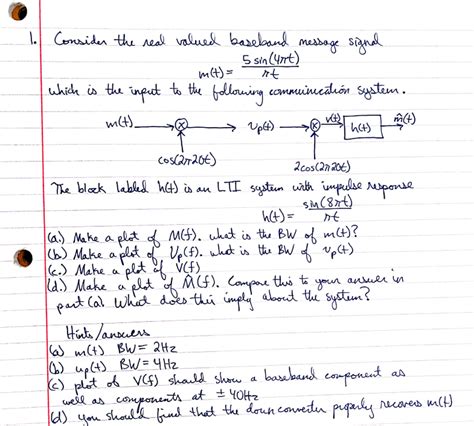 1. Consider the real valued baseband message signal
m(t) = 5 sin(4πt) / πt
which is the input to the following communication system.
m(t) ⊗ υp(t) ⊗ v(t) h(t) m̂(t)
cos(2π20t) 2cos(2π20t)
The block labled h(t) is an LTI system with impulse response
h(t) = sin(8πt) / πt
(a.) Make a plot of M(f). what is the BW of m(t)?
(b.) Make a plot of Vp(f). what is the BW of υp(t)
(c.) Make a plot of V(f)
(d.) Make a plot of M̂(f). Compare this to your answer in
part (a). What does this imply about the system?
Hints/answers
(a) m(t) BW = 2Hz
(b) υp(t) BW = 4Hz
(c) plot of V(f) should show a baseband component as
well as components at ± 40Hz
(d) you should find that the down converter properly recovers m(t)